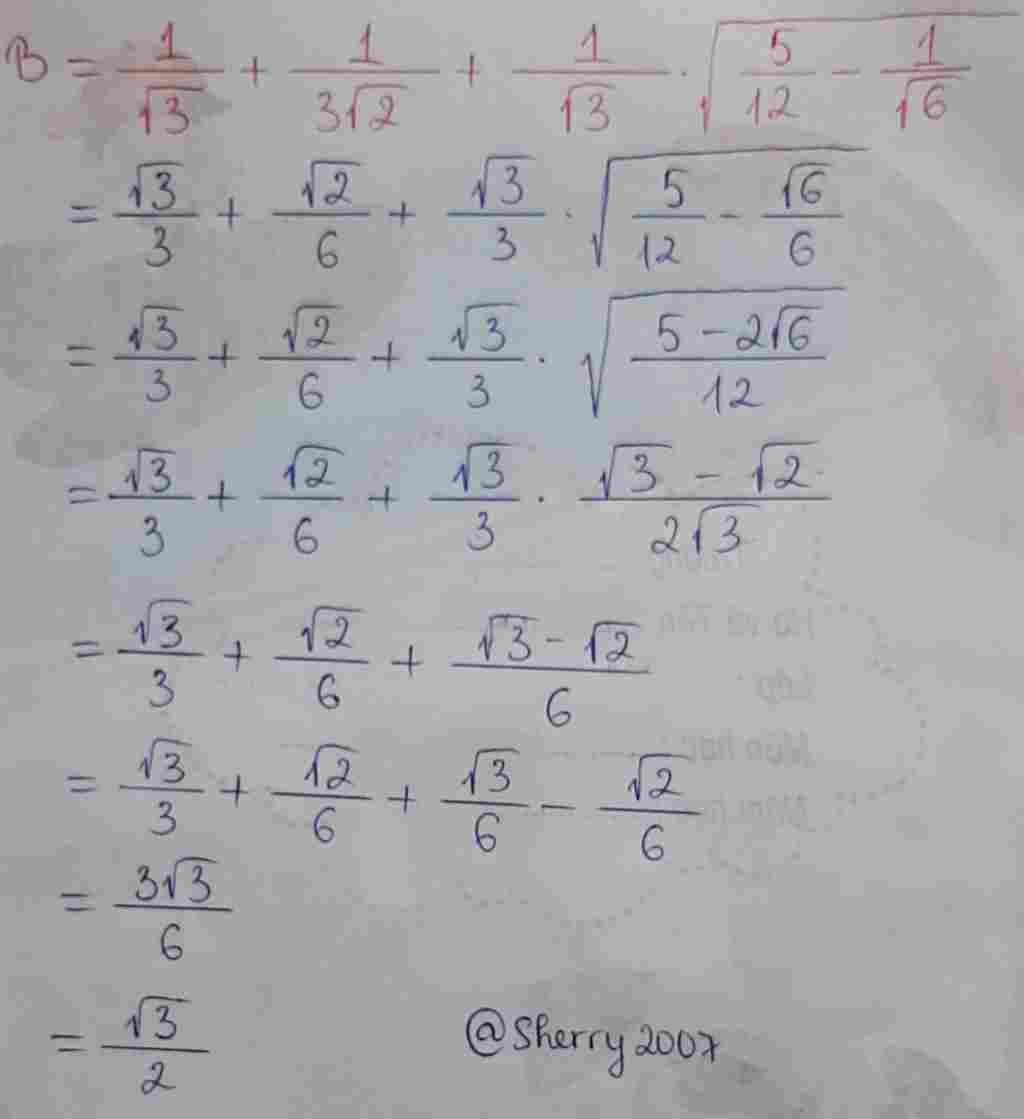 B = 1/√3 + 1/(3√2) + 1/√3 · √(5/12 - 1/√6)
= √3/3 + √2/6 + √3/3 · √(5/12 - √6/6)
= √3/3 + √2/6 + √3/3 · √((5 - 2√6)/12)
= √3/3 + √2/6 + √3/3 · (√3 - √2)/(2√3)
= √3/3 + √2/6 + (√3 - √2)/6
= √3/3 + √2/6 + √3/6 - √2/6
= 3√3/6
= √3/2
@Sherry2007